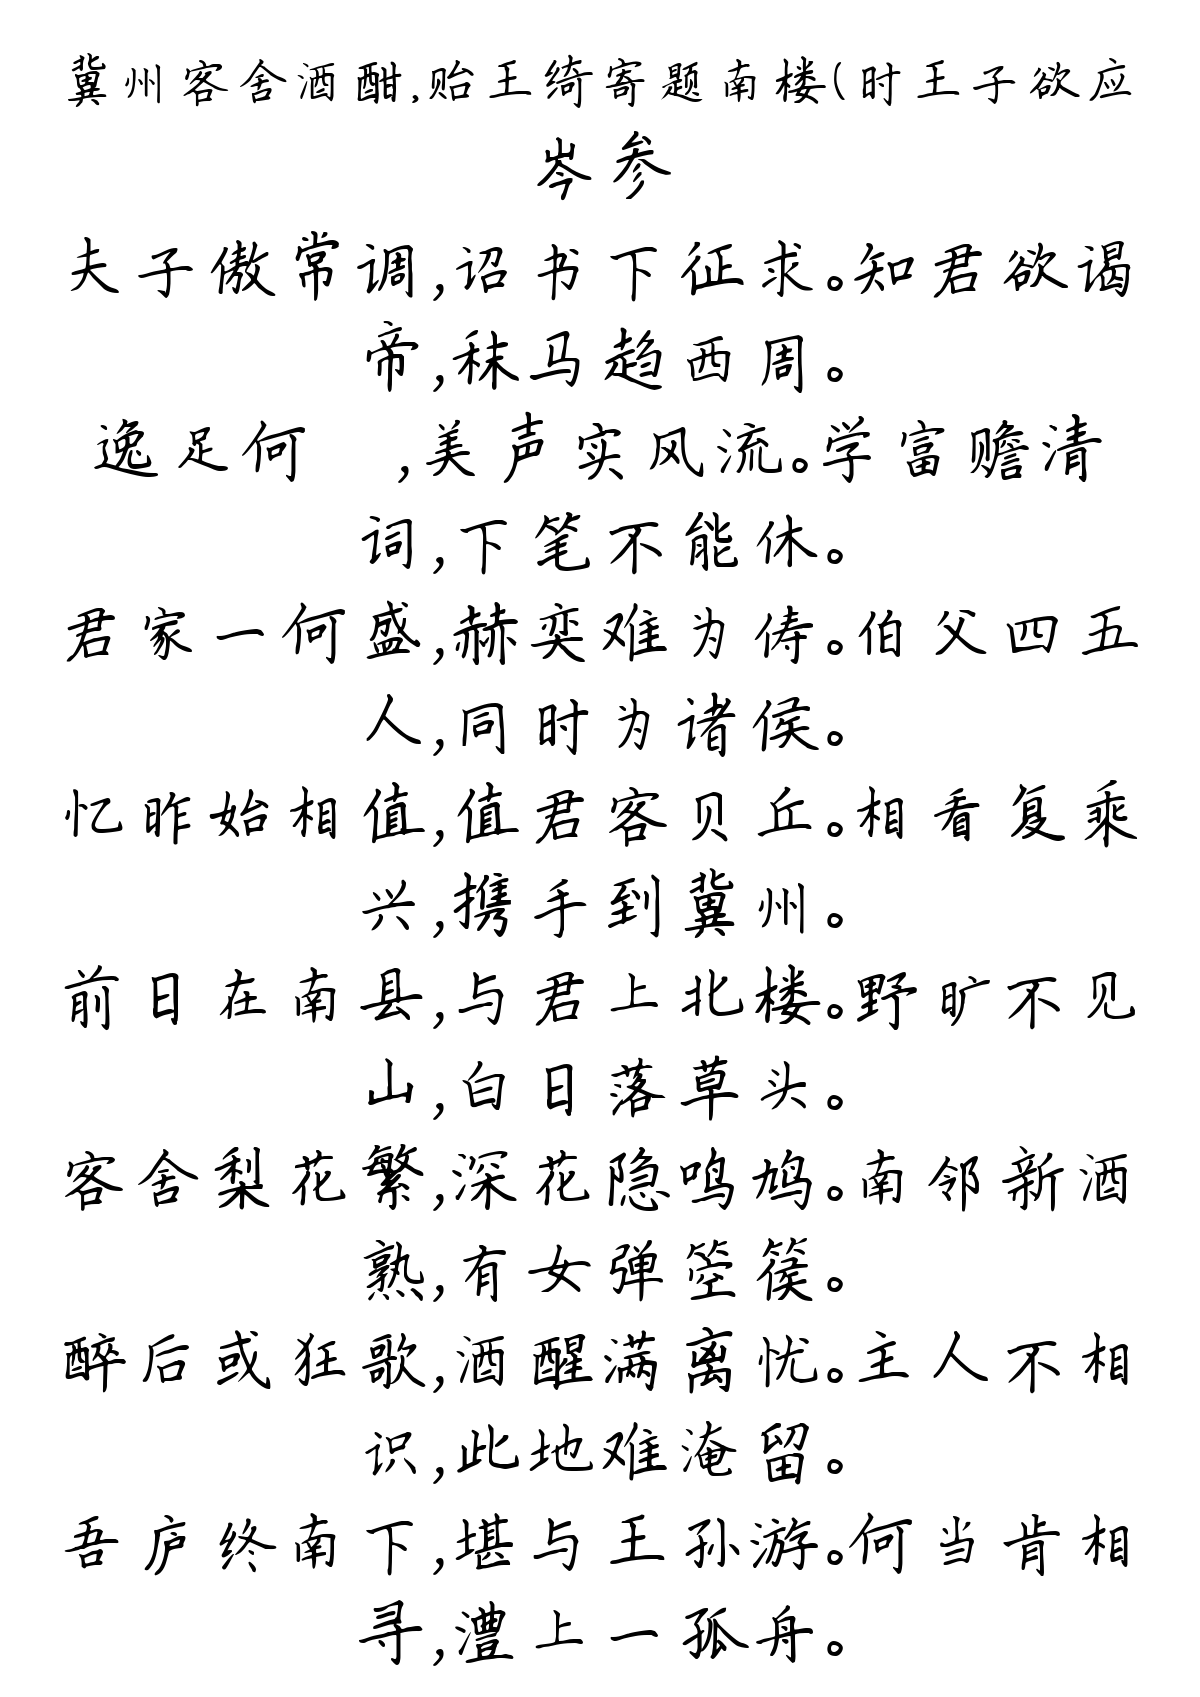 冀州客舍酒酣,贻王绮寄题南楼(时王子欲应
岑参
夫子傲常调,诏书下征求。知君欲谒
帝,秣马趋西周。
逸足何 ,美声实风流。学富赡清
词,下笔不能休。
君家一何盛,赫奕难为俦。伯父四五
人,同时为诸侯。
忆昨始相值,值君客贝丘。相看复乘
兴,携手到冀州。
前日在南县,与君上北楼。野旷不见
山,白日落草头。
客舍梨花繁,深花隐鸣鸠。南邻新酒
熟,有女弹箜篌。
醉后或狂歌,酒醒满离忧。主人不相
识,此地难淹留。
吾庐终南下,堪与王孙游。何当肯相
寻,澧上一孤舟。